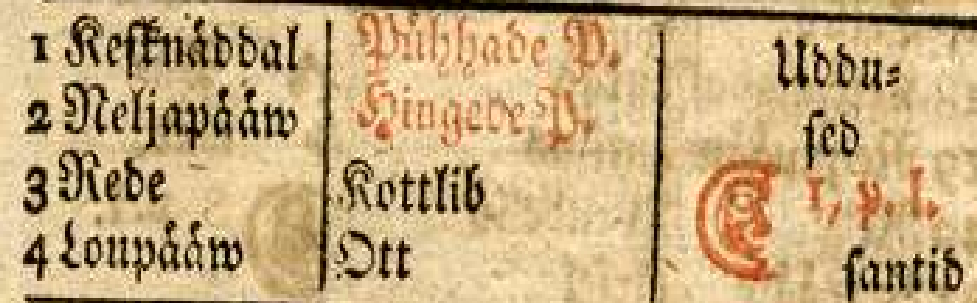 1 Keſknäddal Pühhade P. Uddu⸗
2 Neljapääw Hingede P. ſed
3 Rede Kottlib 1, p. l.
4 Loupääw Ott ſantid